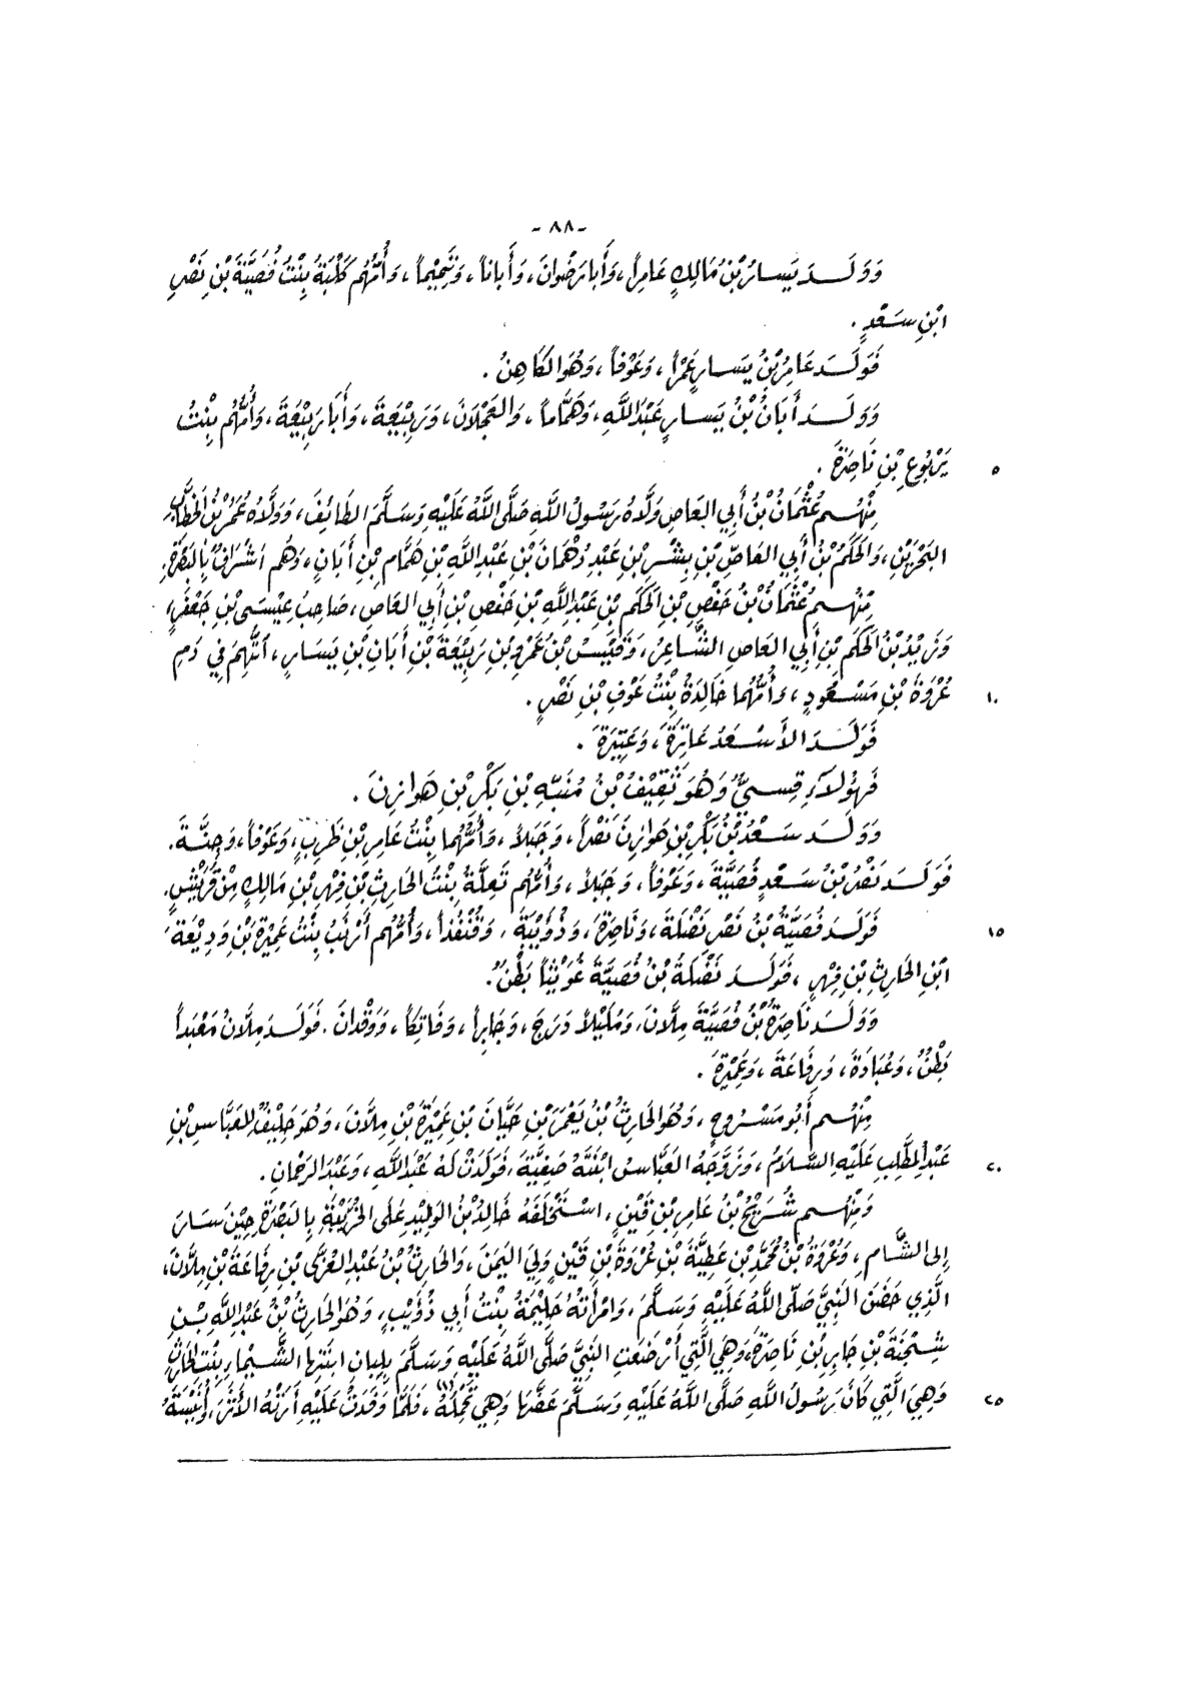 -٨٨-
وَوَلَدَ يَسَارُ بْنُ مَالِكٍ عَامِراً، وَأَبَا رَضْوَانَ، وَأَبَاناً، وَتَمِيْماً، وَأُمُّهُم كَلْبَةُ بِنْتُ قُصَيَّةَ بْنِ نَصْرِ
ابْنِ سَعْدٍ .
فَوَلَدَ عَامِرُ بْنُ يَسَارٍ عَمْراً، وَعَوْفاً، وَهُوَ الكَاهِنُ .
وَوَلَدَ أَبَانُ بْنُ يَسَارٍ عَبْدَ اللَّهِ، وَهَمَّاماً، وَالعَجْلاَنَ، وَرَبِيْعَةَ، وَأَبَا رَبِيْعَةَ، وَأُمُّهُم بِنْتُ
يَرْبُوعِ بْنِ نَاصِرَةَ .
٥
مِنْهُم عُثْمَانُ بْنُ أَبِي العَاصِ وَلَّاهُ رَسُولُ اللَّهِ صَلَّى اللَّهُ عَلَيْهِ وَسَلَّمَ الطَّائِفَ، وَوَلَّاهُ عُمَرُ بْنُ الخَطَّابِ
البَحْرَيْنِ، وَالحَكَمُ بْنُ أَبِي العَاصِّ بْنِ بِشْرِ بْنِ عَبْدِ دُهْمَانَ بْنِ عَبْدِ اللَّهِ بْنِ هَمَّامِ بْنِ أَبَانٍ، وَهُم أَشْرَافٌ بِالبَصْرَةِ.
مِنْهُم عُثْمَانُ بْنُ حَفْصِ بْنِ الحَكَمِ بْنِ عَبْدِ اللَّهِ بْنِ حَفْصِ بْنِ أَبِي العَاصِ، صَاحِبُ عِيْسَى بْنِ جَعْفَرٍ،
وَيَزِيْدُ بْنُ الحَكَمِ بْنِ أَبِي العَاصِ الشَّاعِرُ، وَقَيْسُ بْنُ عَمْرِو بْنِ رَبِيْعَةَ بْنِ أَبَانِ بْنِ يَسَارٍ، اتُّهِمَ فِي دَمِ
عُرْوَةَ بْنِ مَسْعُودٍ، وَأُمُّهُما خَالِدَةُ بِنْتُ عَوْفِ بْنِ نَصْرٍ.
١٠
فَوَلَدَ الأَسْعَدُ عَاتِرَةَ، وَعَتِيْرَةَ .
فَهَؤُلاَءِ قِسِيٌّ وَهُوَ ثَقِيْفُ بْنُ مُنَبِّهِ بْنِ بَكْرِ بْنِ هَوَازِنَ .
وَوَلَدَ سَعْدُ بْنُ بَكْرِ بْنِ هَوَازِنَ نَصْراً، وَجَبَلاً، وَأُمُّهُما بِنْتُ عَامِرِ بْنِ ظَرِبٍ، وَعَوْفاً، وَجِنَّةَ.
فَوَلَدَ نَصْرُ بْنُ سَعْدٍ قُصَيَّةَ، وَعَوْفاً، وَجَبَلاً، وَأُمُّهُم تَعِلَّةُ بِنْتُ الحَارِثِ بْنِ فِهْرِ بْنِ مَالِكٍ مِنْ قُرَيْشٍ.
فَوَلَدَ قُصَيَّةُ بْنُ نَصْرٍ نَضْلَةَ، وَنَاصِرَةَ، وَذُؤَيْبَةَ، وَقُنْفُذاً، وَأُمُّهُم أَرْنَبُ بِنْتُ عَمِيْرَةَ بْنِ وَدِيْعَةَ
١٥
ابْنِ الحَارِثِ بْنِ فِهْرٍ، فَوَلَدَ نَضْلَةُ بْنُ قُصَيَّةَ غُوَيْثاً بَطْنٌ.
وَوَلَدَ نَاصِرَةُ بْنُ قُصَيَّةَ مِلَّانَ، وَمُلَيْلاً دَرَجَ، وَجَابِراً، وَفَاتِكاً، وَوَقْدَانَ. فَوَلَدَ مِلَّانُ مَعْبَداً
بَطْنٌ، وَعُبَادَةَ، وَرِفَاعَةَ، وَعَمِيْرَةَ .
مِنْهُم أَبُو مَسْرُوحٍ، وَهُوَ الحَارِثُ بْنُ يَعْمَرَ بْنِ حَيَّانَ بْنِ عَمِيْرَةَ بْنِ مِلَّانَ، وَهُوَ حَلِيْفٌ لِلعَبَّاسِ بْنِ
عَبْدِ المُطَّلِبِ عَلَيْهِ السَّلاَمُ، وَزَوَّجَهُ العَبَّاسُ ابْنَتَهُ صَفِيَّةَ، فَوَلَدَتْ لَهُ عَبْدَ اللَّهِ، وَعَبْدَ الرَّحْمَانِ.
٢٠
وَمِنْهُم شُرَيْحُ بْنُ عَامِرِ بْنِ قَيْنٍ، اسْتَخْلَفَهُ خَالِدُ بْنُ الوَلِيْدِ عَلَى الخُرَيْبَةِ بِالبَصْرَةِ حِيْنَ سَارَ
إِلَى الشَّامِ، وَعُرْوَةُ بْنُ مُحَمَّدِ بْنِ عَطِيَّةَ بْنِ عُرْوَةَ بْنِ قَيْنٍ وَلِيَ اليَمَنَ، وَالحَارِثُ بْنُ عَبْدِ العُزَّى بْنِ رِفَاعَةَ بْنِ مِلَّانَ،
الَّذِي حَضَنَ النَّبِيَّ صَلَّى اللَّهُ عَلَيْهِ وَسَلَّمَ، وَامْرَأَتُهُ حَلِيْمَةُ بِنْتُ أَبِي ذُؤَيْبٍ، وَهُوَ الحَارِثُ بْنُ عَبْدِ اللَّهِ بْنِ
شِجْنَةَ بْنِ جَابِرِ بْنِ نَاصِرَةَ، وَهِيَ الَّتِي أَرْضَعَتِ النَّبِيَّ صَلَّى اللَّهُ عَلَيْهِ وَسَلَّمَ بِلِبَانِ ابْنَتِهَا الشَّيْمَاءِ بِنْتِ الحَارِثِ
وَهِيَ الَّتِي كَانَ رَسُولُ اللَّهِ صَلَّى اللَّهُ عَلَيْهِ وَسَلَّمَ عَضَّهَا وَهِيَ تَحْمِلُهُ (١)، فَلَمَّا وَفَدَتْ عَلَيْهِ أَرَتْهُ الأَثَرَ، وَأُنَيْسَةُ
٢٥